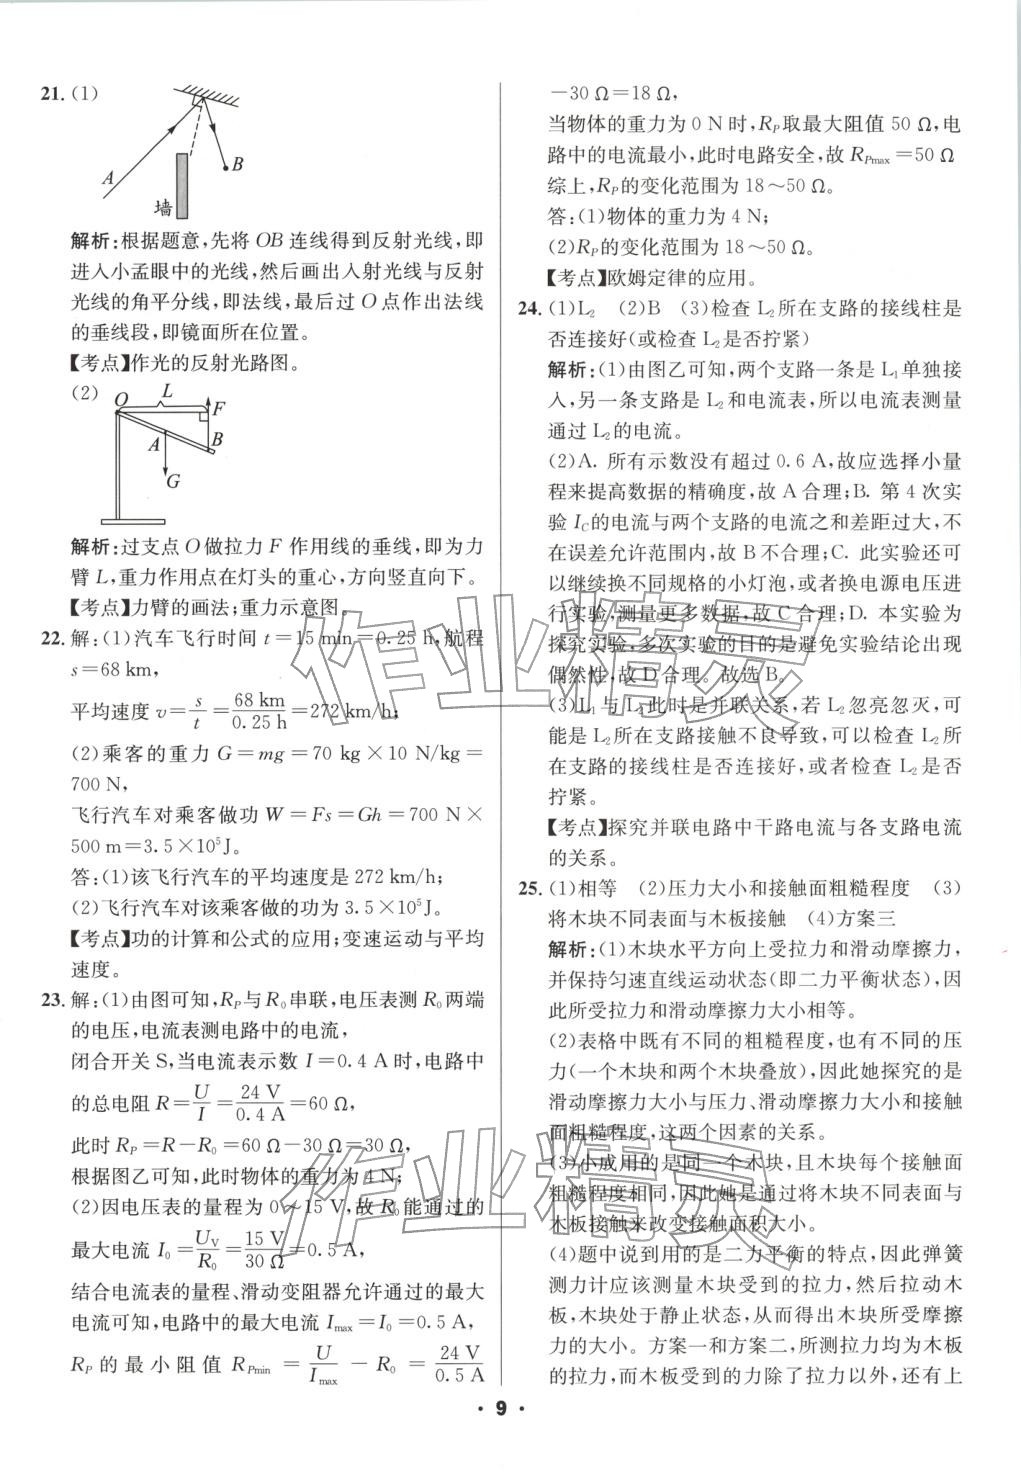 21. (1)
A
B
墙
解析:根据题意,先将 OB 连线得到反射光线,即
进入小孟眼中的光线,然后画出入射光线与反射
光线的角平分线,即法线,最后过 O 点作出法线
的垂线段,即镜面所在位置。
【考点】作光的反射光路图。
(2)
L
O
F
A
B
G
解析:过支点 O 做拉力 F 作用线的垂线,即为力
臂 L,重力作用点在灯头的重心,方向竖直向下。
【考点】力臂的画法;重力示意图。
22. 解:(1)汽车飞行时间 t=15 min=0.25 h,航程
s=68 km,
平均速度 v=s/t=68 km/0.25 h=272 km/h;
(2)乘客的重力 G=mg=70 kg×10 N/kg=
700 N,
飞行汽车对乘客做功 W=Fs=Gh=700 N×
500 m=3.5×10⁵J。
答:(1)该飞行汽车的平均速度是 272 km/h;
(2)飞行汽车对该乘客做的功为 3.5×10⁵J。
【考点】功的计算和公式的应用;变速运动与平均
速度。
23. 解:(1)由图可知,R_P与 R₀串联,电压表测 R₀两端
的电压,电流表测电路中的电流,
闭合开关 S,当电流表示数 I=0.4 A 时,电路中
的总电阻 R=U/I=24 V/0.4 A=60 Ω,
此时 R_P=R-R₀=60 Ω-30 Ω=30 Ω,
根据图乙可知,此时物体的重力为 4 N;
(2)因电压表的量程为 0~15 V,故 R₀能通过的
最大电流 I₀=U_V/R₀=15 V/30 Ω=0.5 A,
结合电流表的量程、滑动变阻器允许通过的最大
电流可知,电路中的最大电流 I_max=I₀=0.5 A,
R_P 的最小阻值 R_Pmin=U/I_max-R₀=24 V/0.5 A
-30 Ω=18 Ω,
当物体的重力为 0 N 时,R_P取最大阻值 50 Ω,电
路中的电流最小,此时电路安全,故 R_Pmax=50 Ω
综上,R_P的变化范围为 18~50 Ω。
答:(1)物体的重力为 4 N;
(2)R_P的变化范围为 18~50 Ω。
【考点】欧姆定律的应用。
24. (1)L₂ (2)B (3)检查 L₂所在支路的接线柱是
否连接好(或检查 L₂是否拧紧)
解析:(1)由图乙可知,两个支路一条是 L₁单独接
入,另一条支路是 L₂和电流表,所以电流表测量
通过 L₂的电流。
(2)A. 所有示数没有超过 0.6 A,故应选择小量
程来提高数据的精确度,故 A 合理;B. 第 4 次实
验 I_C的电流与两个支路的电流之和差距过大,不
在误差允许范围内,故 B 不合理;C. 此实验还可
以继续换不同规格的小灯泡,或者换电源电压进
行实验,测量更多数据,故 C 合理;D. 本实验为
探究实验,多次实验的目的是避免实验结论出现
偶然性,故 D 合理。故选 B。
(3)L₁与 L₂此时是并联关系,若 L₂忽亮忽灭,可
能是 L₂所在支路接触不良导致,可以检查 L₂所
在支路的接线柱是否连接好,或者检查 L₂是否
拧紧。
【考点】探究并联电路中干路电流与各支路电流
的关系。
25. (1)相等 (2)压力大小和接触面粗糙程度 (3)
将木块不同表面与木板接触 (4)方案三
解析:(1)木块水平方向上受拉力和滑动摩擦力,
并保持匀速直线运动状态(即二力平衡状态),因
此所受拉力和滑动摩擦力大小相等。
(2)表格中既有不同的粗糙程度,也有不同的压
力(一个木块和两个木块叠放),因此她探究的是
滑动摩擦力大小与压力、滑动摩擦力大小和接触
面粗糙程度,这两个因素的关系。
(3)小成用的是同一个木块,且木块每个接触面
粗糙程度相同,因此她是通过将木块不同表面与
木板接触来改变接触面积大小。
(4)题中说到用的是二力平衡的特点,因此弹簧
测力计应该测量木块受到的拉力,然后拉动木
板,木块处于静止状态,从而得出木块所受摩擦
力的大小。方案一和方案二,所测拉力均为木板
的拉力,而木板受到的力除了拉力以外,还有上
· 9 ·
作业精灵
作业精灵